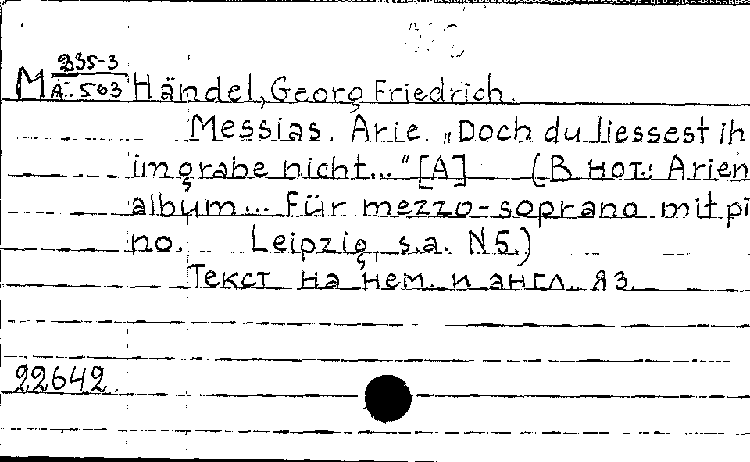 М 235-3 / А-503 Händel, Georg Friedrich.
Messias. Arie. „Doch du liessest ih
im grabe nicht..." [A] (В нот.: Arien
album... Für mezzo-soprano mit pi
no. Leipzig, s.a. N5.)
Текст на нем. и англ. яз.
22642.